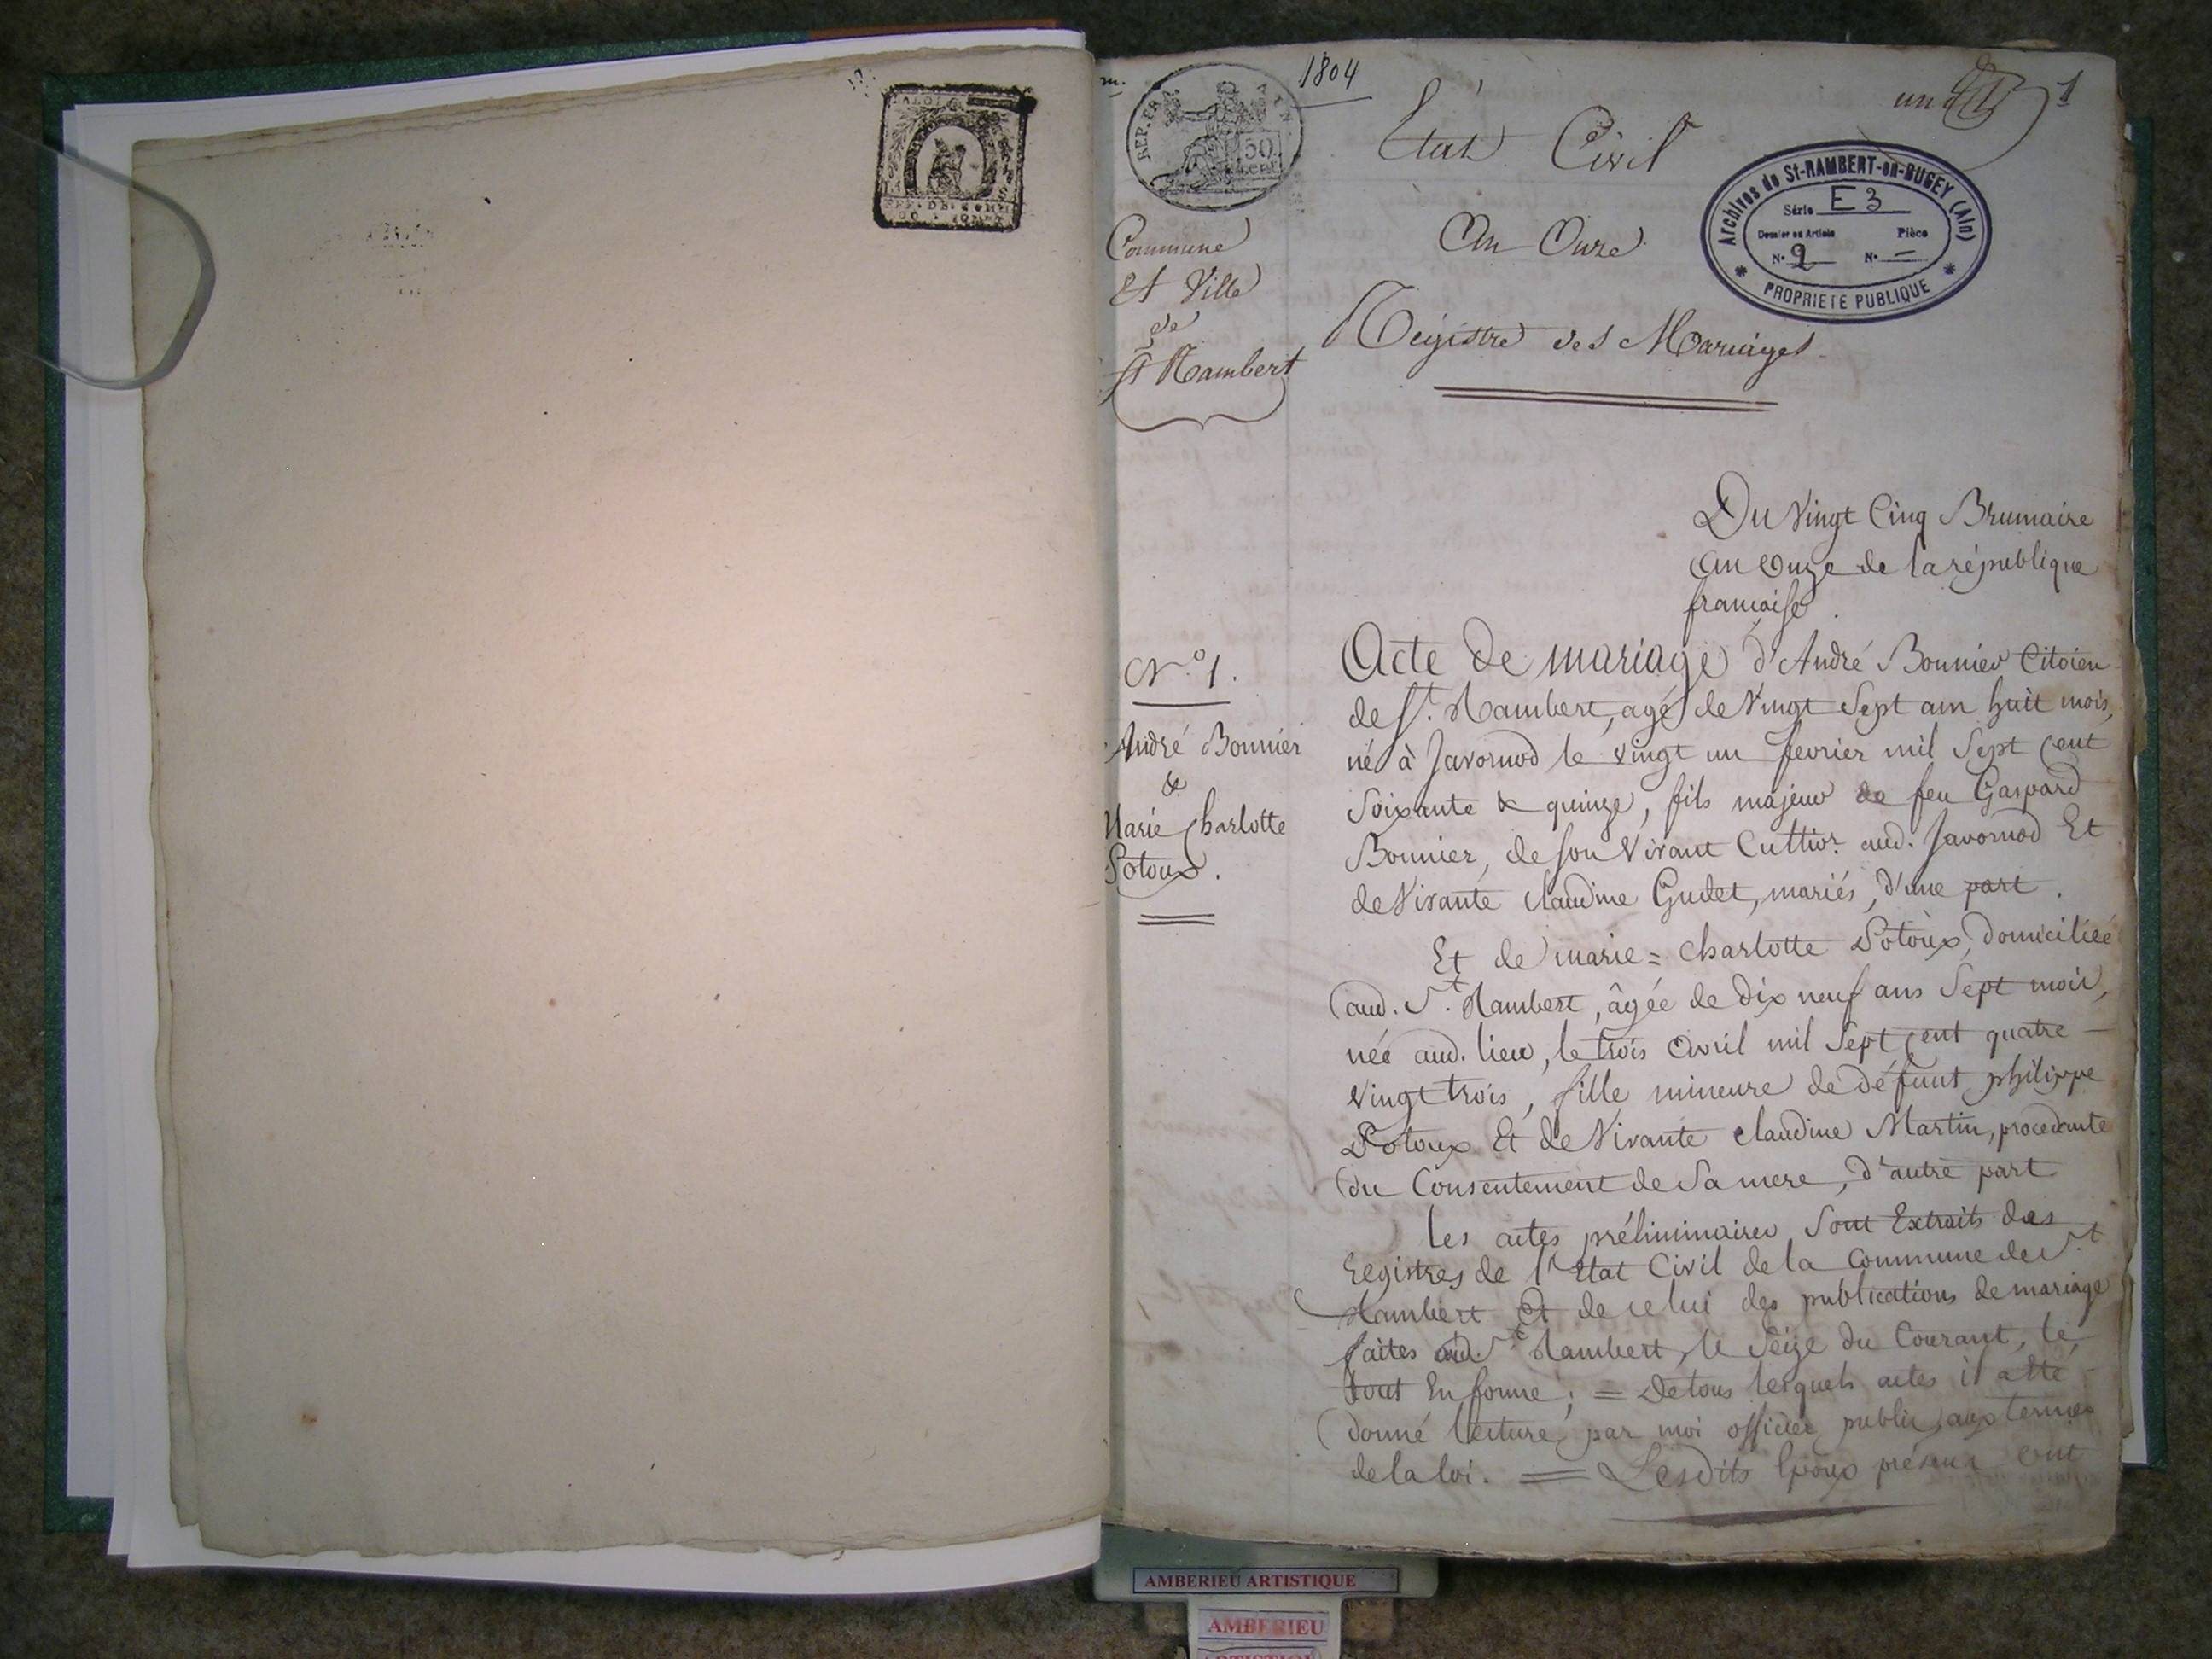 1804
un 1
REP. FRA.
50
cent
Etat Civil
An Onze
Régistre des Mariages
Archives de St-RAMBERT-en-BUGEY (Ain)
Série E3
Dossier ou Article Pièce
N° 2 N° —
PROPRIETE PUBLIQUE
Commune
Et Ville
de
St Rambert
Du Vingt Cinq Brumaire
an onze de la république
francaise.
N.° 1.
André Bonnier
&
Marie Charlotte
Potoux.
Acte de mariage d'André Bonnier Citoien
de St. Rambert, agé de Vingt Sept ans huit mois,
né à Javornod le vingt un fevrier mil Sept Cent
Soixante & quinze, fils majeur de feu Gaspard
Bonnier, de son Vivant Cultivr. aud. Javornod Et
de Vivante Claudine Gudet, mariés, d'une part.
Et de marie = Charlotte Potoux, domiciliée
aud. St. Rambert, âgée de dix neuf ans Sept mois,
née aud. lieu, le trois avril mil Sept Cent quatre
Vingt trois, fille mineure de défunt philippe
Potoux Et de Vivante Claudine Martin, procedante
du Consentement de Sa mere, d'autre part
Les actes préliminaires Sont Extraits des
Registres de l'Etat Civil de la Commune de St.
Rambert Et de celui des publications de mariage
faites aud. St Rambert, le Seize du Courant, le
tout En forme; = De tous lesquels actes il a été
donné lecture par moi officier public, aux termes
de la loi. = Lesdits Epoux présens ont
AMBERIEU ARTISTIQUE
AMBERIEU
ARTISTIQUE